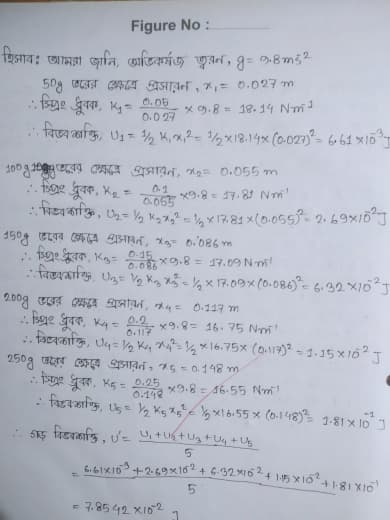 Figure No :
হিসাবঃ আমরা জানি, অভিকর্ষজ ত্বরণ, g = 9.8ms²
50g ভরের ক্ষেত্রে প্রসারন, x₁ = 0.027 m
∴ স্প্রিং ধ্রুবক, K₁ = 0.05/0.027 × 9.8 = 18.14 Nm¹
∴ বিভবশক্তি, U₁ = ½ K₁x₁² = ½×18.14×(0.027)² = 6.61×10⁻³J
100g ভরের ক্ষেত্রে প্রসারন, x₂ = 0.055m
∴ স্প্রিং ধ্রুবক, K₂ = 0.1/0.055 ×9.8 = 17.81 Nm¹
∴ বিভবশক্তি, U₂ = ½ K₂x₂² = ½×17.81×(0.055)² = 2.69×10⁻²J
150g ভরের ক্ষেত্রে প্রসারন, x₃ = 0.086m
∴ স্প্রিং ধ্রুবক, K₃ = 0.15/0.086 ×9.8 = 17.09 Nm¹
∴ বিভবশক্তি, U₃ = ½ K₃ x₃² = ½×17.09×(0.086)² = 6.32×10⁻²J
200g ভরের ক্ষেত্রে প্রসারন, x₄ = 0.117m
∴ স্প্রিং ধ্রুবক, K₄ = 0.2/0.117 ×9.8 = 16.75 Nm¹
∴ বিভবশক্তি, U₄ = ½ K₄ x₄² = ½×16.75×(0.117)² = 1.15×10⁻² J
250g ভরের ক্ষেত্রে প্রসারন, x₅ = 0.148m
∴ স্প্রিং ধ্রুবক, K₅ = 0.25/0.148 ×9.8 = 16.55 Nm¹
∴ বিভবশক্তি, U₅ = ½ K₅x₅² = ½×16.55×(0.148)² = 1.81×10⁻¹ J
∴ গড় বিভবশক্তি, U' = U₁+U₂+U₃+U₄+U₅/5
= 6.61×10⁻³+2.69×10⁻²+6.32×10⁻²+1.15×10⁻²+1.81×10⁻¹/5
= 7.8542×10⁻² J